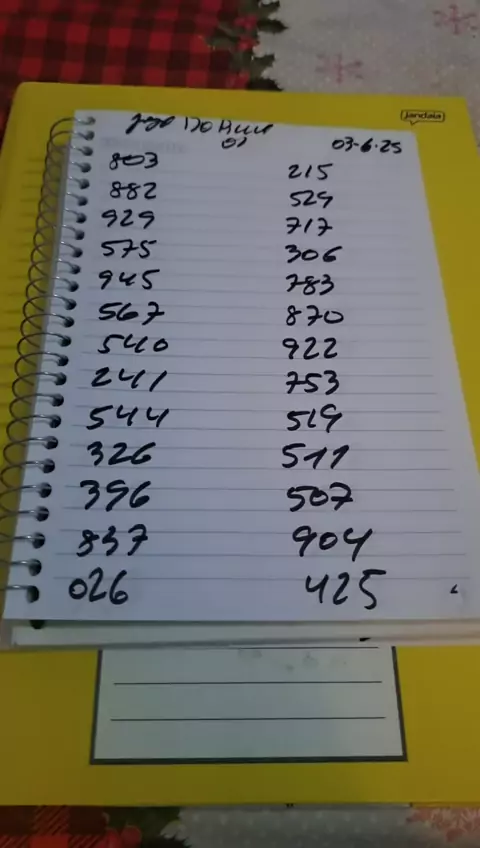 jandaia
03-6-25
01
803 215
882 529
929 717
575 306
945 783
567 870
540 922
241 753
544 519
326 511
396 507
837 904
026 425